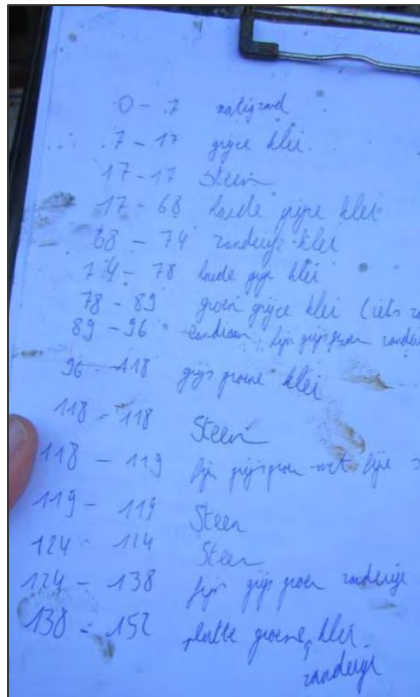 0 - 7
7 - 17 grijze klei
17 - 17 Steen
17 - 68 harde grijze klei
68 - 74 zanderige klei
74 - 78 harde grijze klei
78 - 89 groen grijze klei (iets
89 - 96 fijn grijsgroen
96 - 118 grijs groene klei
118 - 118 Steen
118 - 119 fijn grijsgroen met fijne
119 - 119 Steen
124 - 124 Steen
124 - 138 fijn grijs groen zanderige
138 - 152 platte groene klei
zanderige